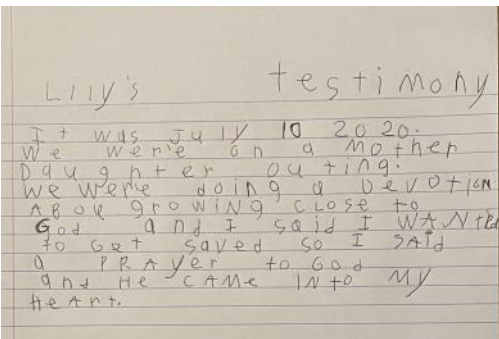 Lilly's testimony
It was July 10 2020.
We were on a mother
Daughter outing.
We were doing a Devotion
ABou growing close to
God and I said I WANted
to Get saved so I SAiD
a PRAyer to God
and He CAMe INto My
HeArt.